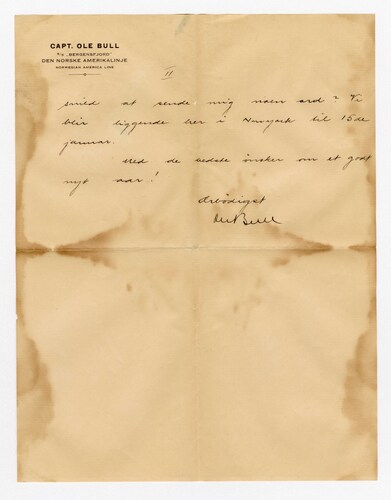 CAPT. OLE BULL
S/S „BERGENSFJORD"
DEN NORSKE AMERIKALINJE
NORWEGIAN AMERICA LINE
II
snild at sende mig noen ord? Vi
blir liggende her i Newyork til 15de
januar.
Med de bedste ønsker om et godt
nyt aar!
Ærbødigst
Ole Bull